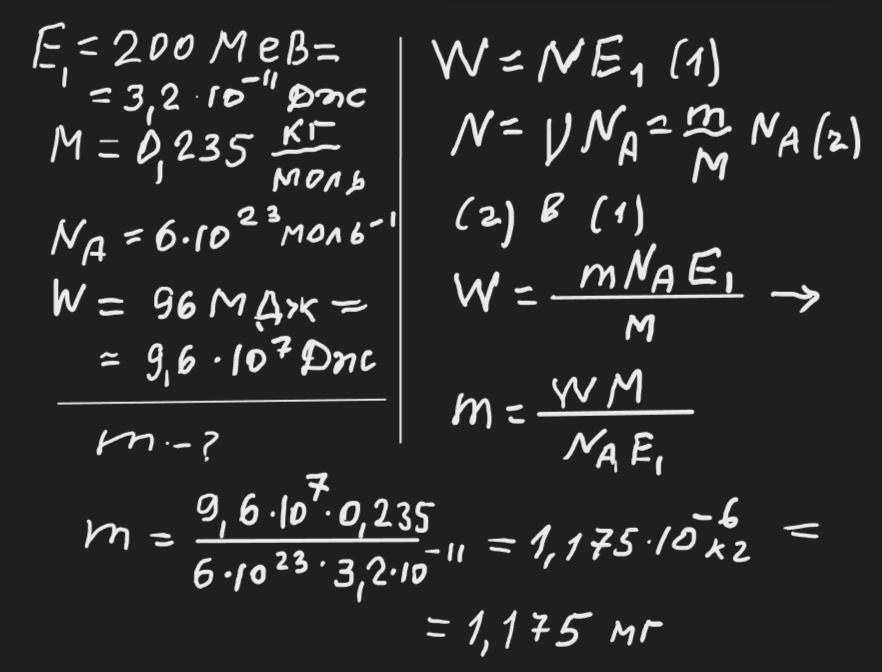 E₁ = 200 МеВ =
= 3,2 · 10⁻¹¹ Дж
M = 0,235 кг/моль
N_A = 6·10²³ моль⁻¹
W = 96 МДж =
= 9,6 · 10⁷ Дж
m - ?
W = NE₁ (1)
N = νN_A = m/M N_A (2)
(2) в (1)
W = mN_AE₁/M →
m = WM/N_AE₁
m = 9,6·10⁷·0,235/6·10²³·3,2·10⁻¹¹ = 1,175·10⁻⁶ кг =
= 1,175 мг